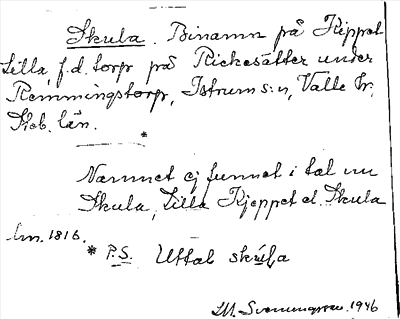 Skula. Binamn på Kippet
Lilla, f.d. torp på Rickesätter under
Remmingstorp, Istrum s:n, Valle hr,
Skb. län.
*
Namnet ej funnet i tal nu
Skula, Lilla Kjeppet el. Skula
Anm. 1816.
* P.S. Uttal skúla
M. Svenungsson 1946